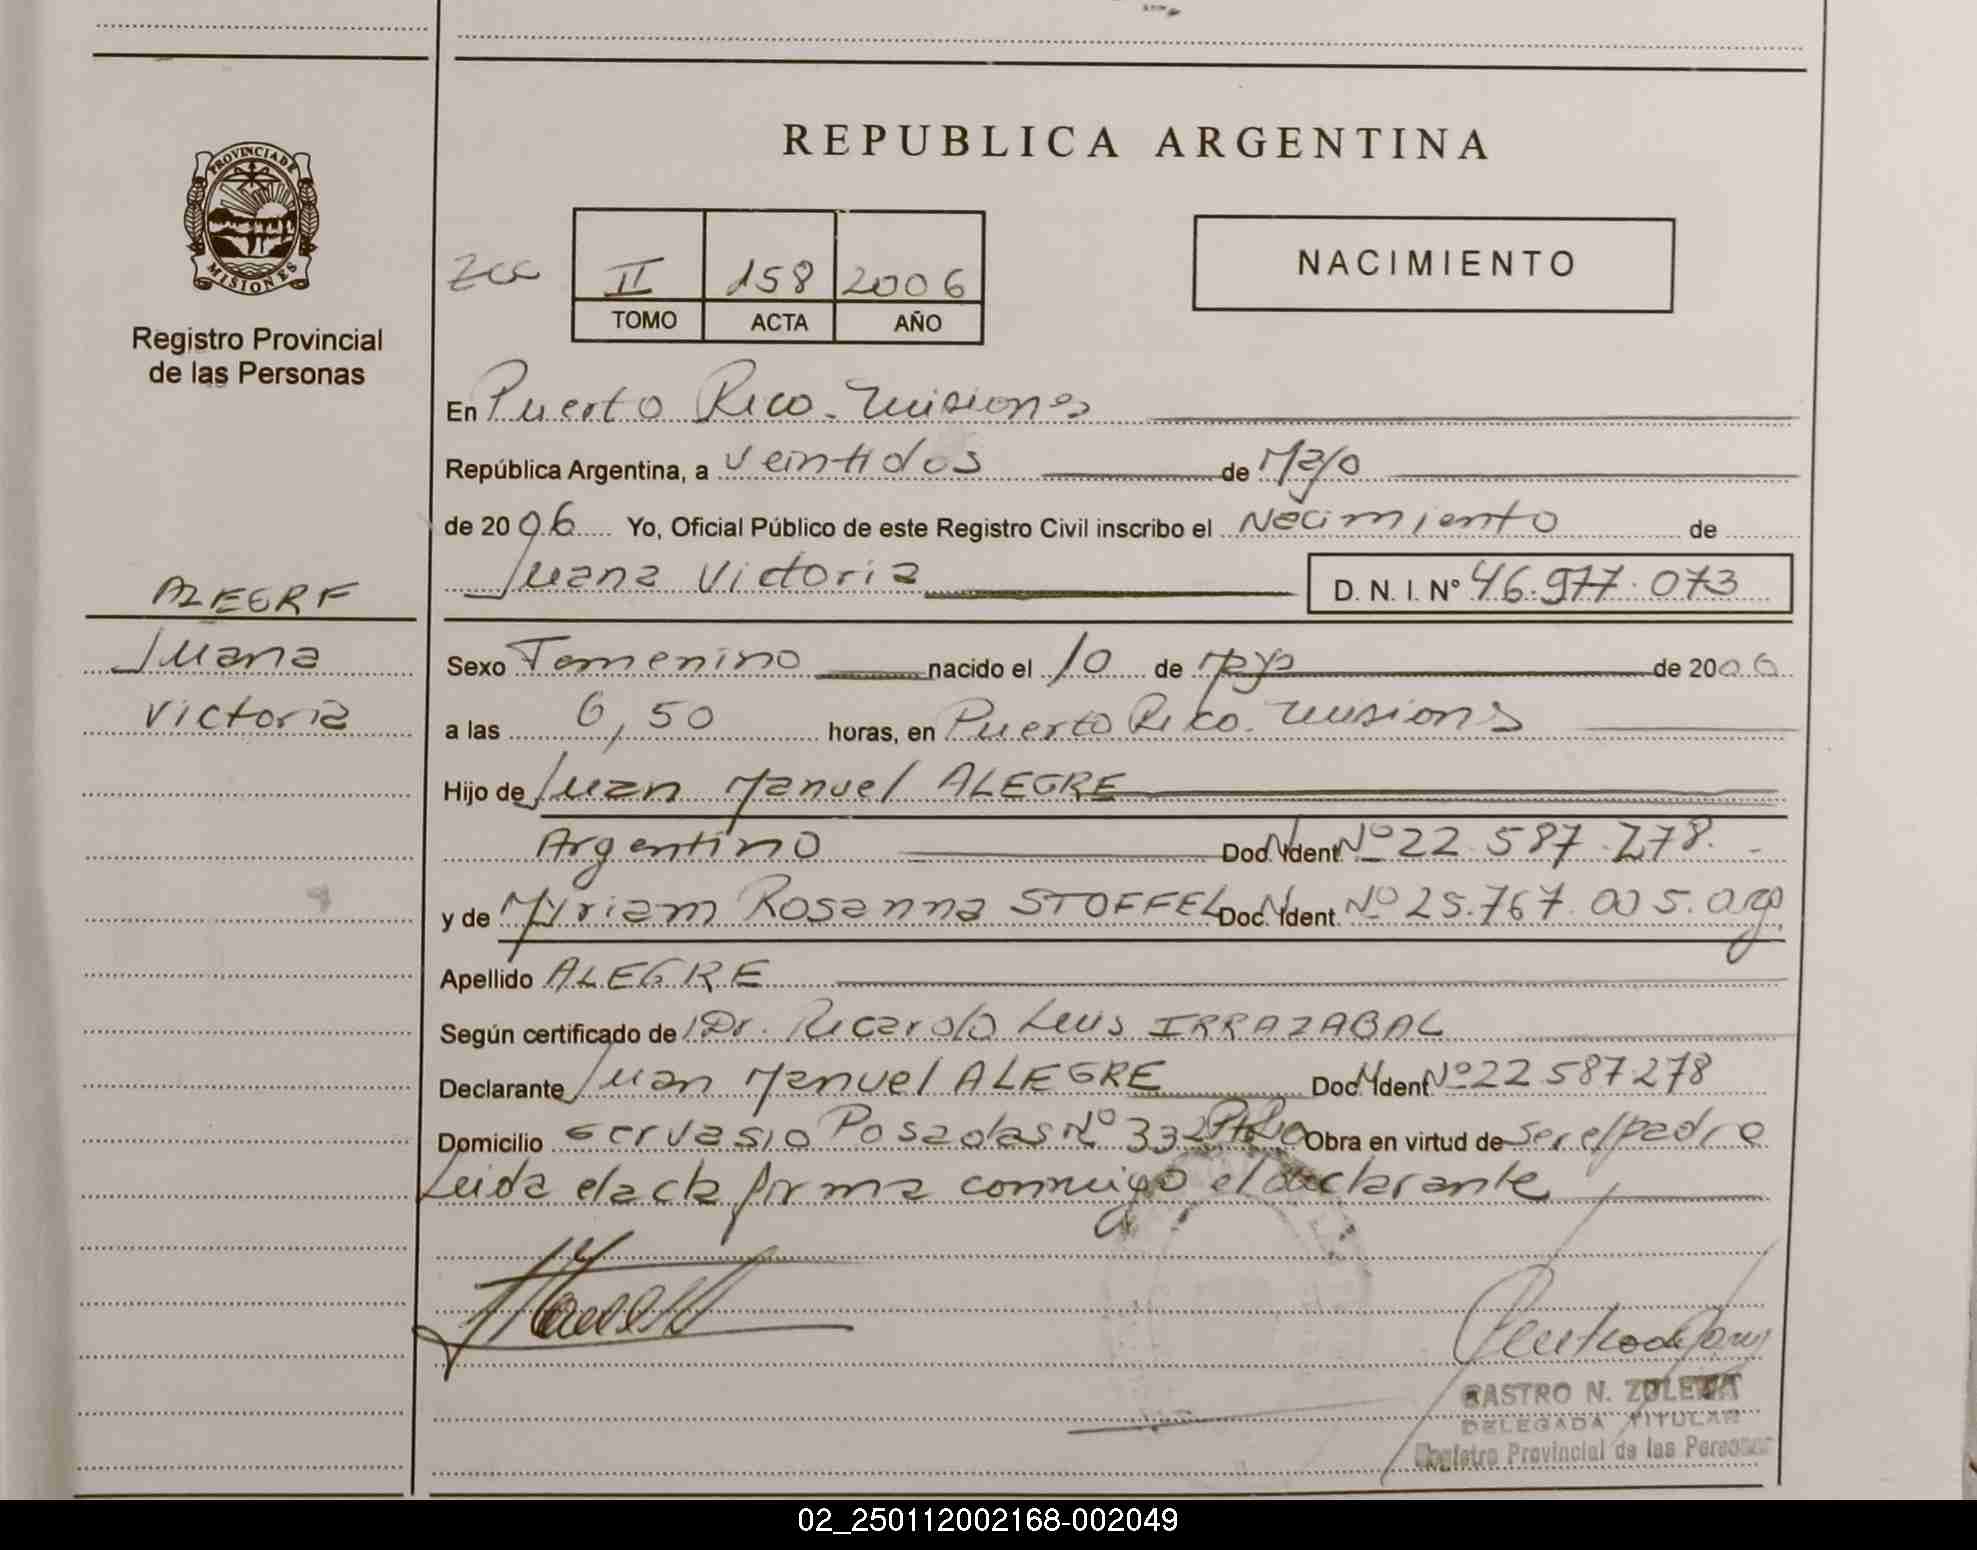 REPUBLICA ARGENTINA
PROVINCIA DE
MISIONES
Registro Provincial
de las Personas
II 158 2006
TOMO ACTA AÑO
NACIMIENTO
En Puerto Rico. Misiones
República Argentina, a veintidos de Mayo
de 2006 Yo, Oficial Público de este Registro Civil inscribo el Nacimiento de
Juana Victoria D. N. I. Nº 46.977.073
ALEGRE
Juana
Victoria
Sexo Femenino nacido el 10 de Mayo de 2006
a las 6,50 horas, en Puerto Rico. Misiones
Hijo de Juan Manuel ALEGRE
Argentino Doc. Ident. Nº 22.587.278.-
y de Myriam Rosanna STOFFEL Doc. Ident. Nº 25.767.005. arg.
Apellido ALEGRE
Según certificado de Dr. Ricardo Luis IRRAZABAL
Declarante Juan Manuel ALEGRE Doc. Ident. Nº 22.587.278
Domicilio Gervasio Posadas Nº 332 Pto Rico Obra en virtud de ser el padre
Leida el acta firma conmigo el declarante
DELEGADA TITULAR
Registro Provincial de las Personas
02_250112002168-002049